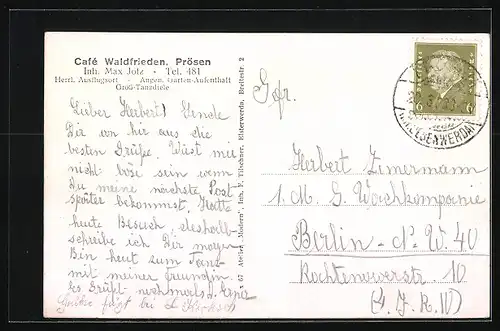 Café Waldfrieden, Prösen
Inh. Max Jotz • Tel. 481
Herrl. Ausflugsort - Angen. Garten-Aufenthalt
Groß-Tanzdiele
Lieber Herbert! Sende
Dir von hier aus die
besten Grüße. Wirst mir
nicht böse sein wenn
Du meine nächste Post
später bekommst. Hatte
heute Besuch, deshalb
schreibe ich Dir morgen
Bin heut zum Tanz
mit meiner Freundin.
Es grüßt nochmals d.
Grüße fügt bei
z 67 Atelier „Modern", Inh. F. Tilschner, Elsterwerda, Breitestr. 2
Gefr.
Herbert Zimermann
1. M. G. Wachkompanie
Berlin - N. W. 40
Rathenowerstr 10
6 6
(LIEBENWERDA)